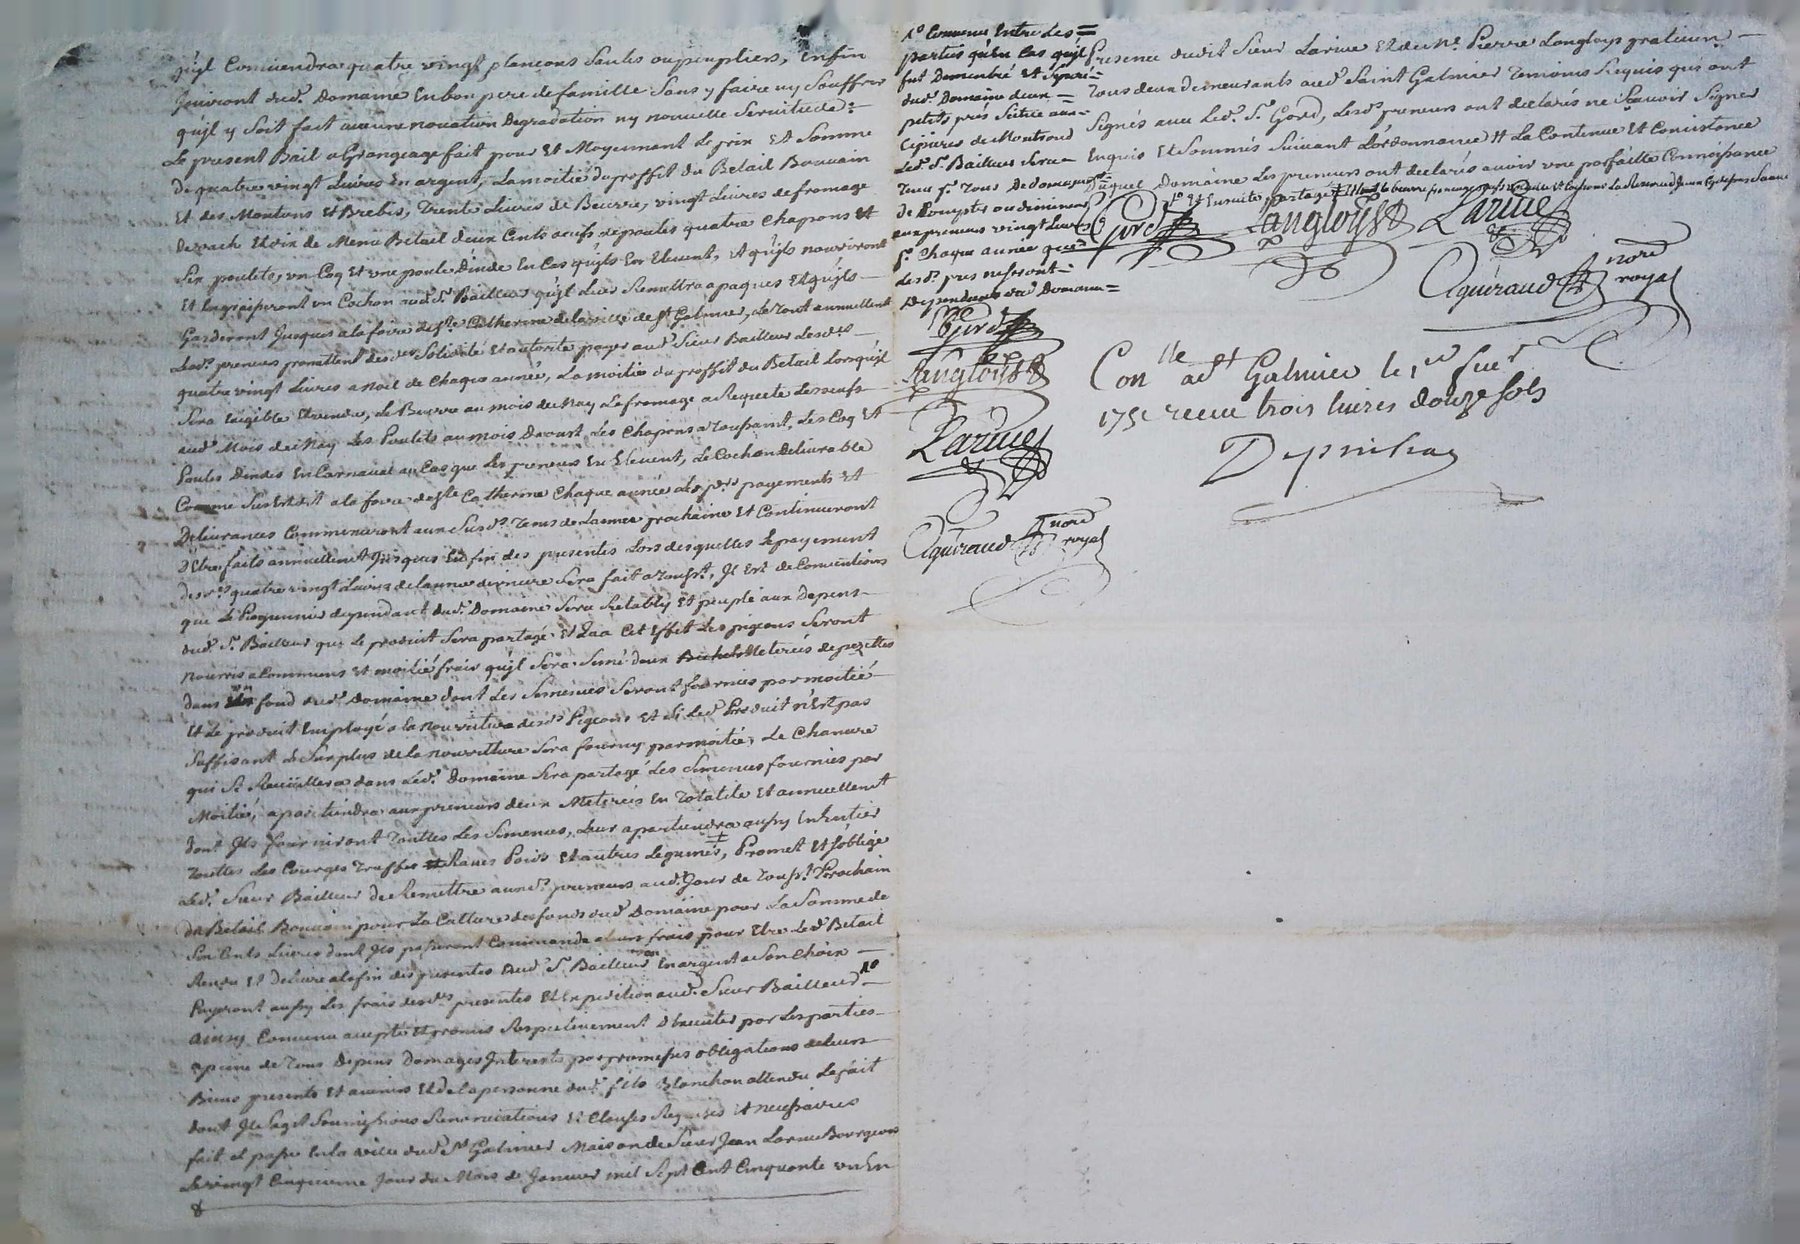 qu'jl Conviendra quatre vingt plancons Saules ou peupliers, Enfin
Jouiront dud.t Domaine En bon pere de famille Sans y faire ny Souffrir
qu'jl y Soit fait aucune novation Degradation ny nouvelle Servitude
Le present Bail a Grangeage fait pour Et Moyennant Le prix Et Somme
De quatre vingt Livres En argent, La moitié du proffit du Betail Bouvain
Et des Moutons Et Brebis, Trente Livres de Beurre, vingt Livres de fromage
De vache Et de Menu Betail deux Cents oeufs de poules quatre Chapons Et
Six poulets, un Coq Et une poule Dinde En Cas qu'jls En Elevent, Et qu'jls nourriront
Et Engraisseront un Cochon aud. S.r Bailleur qu'jl Leur Remettra a paques Et qu'jls
Garderont Jusques a la foire de S.te Catherine de la ville de S.t Galmier, Le Tout annuellement
Lesd.s preneurs promettent Solidité Et autorité payer aud. Sieur Bailleur Lesdes
quatre vingt Livres a Noel de Chaque année, La moitié du proffit du Betail Lorsqu'jl
Sera Exigible Et rendu, Le Beurre au mois de May Le fromage a Requete Les oeufs
aud. Mois de May Les Poulets au mois D'aoust, Les Chapons a Toussaint, Les Coq Et
Poules Dindes En Carnaval au Cas que Les preneurs En Elevent, Le Cochon Delivrable
Comme Sus Est dit a la foire de S.te Catherine Chaque année Les payements Et
Delivrances Commenceront aux Susd.s Tems de L'année prochaine Et Continueront
D'Etre faits annuellement Jusques En fin des presentes Lors desquelles Le payement
desd. quatre vingt Livres de L'année derniere Sera fait a Touss.t, Jl Est de Conventions
que Le Pigeonnier dependant dud. Domaine Sera Retably Et peuplé aux depens
dud. S.r Bailleur que Le produit Sera partagé Et Qua Cet Effet Les pigeons Seront
nourris a Communs Et moitié frais qu'jl Sera Semé deux Meterées de pezettes
dans fond dud. Domaine dont Les Semences Seront fournies par moitié
Et Le produit Employé a la nourriture desd. Pigeons Et Si Led. Produit n'Est pas
Suffisant Le Surplus de la nourriture Sera fourny par moitié, Le Chanvre
qui Se Recüillera dans Led. Domaine Sera partagé Les Semences fournies par
Moitié, apartiendra aux preneurs deux Meterées En Totalité Et annuellement
dont Jls fourniront Toutes Les Semences, Leur apartiendra aussy En Entier
Toutes Les Courges Truffes Raves Pois Et autres Legumes, Promet Et S'oblige
Led. Sieur Bailleur De Remettre auxd. preneurs aud. Jour de Touss.t Prochain
du Betail Bouvain pour La Culture des fonds dud. Domaine pour La Somme de
Six Cents Livres dont Jls passeront Commande a Leurs frais pour Etre Led. Betail
Rendu Et Delivré a la fin des presentes aud. S.r Bailleur ou En argent a Son Choix
Payeront aussy Les frais desd. presentes Et Expedition aud. Sieur Bailleur 1°
ainsy Convenu accepté Et promis Respectivement d'Executer par Les parties
a peine de Tous depens Domages Interets par promesses obligations de Leurs
Biens presents Et avenirs Et de la personne dud. fils Blanchon attendu Le fait
dont Jl S'agit Soumissions Renonciations Et Clauses Requises Et necessaires
fait Et passé En la ville dud. S.t Galmier Maison de Sieur Jean Larive Bourgeois
Le vingt Cinquieme Jour du Mois de Janvier mil Sept Cent Cinquante un En
1° Convenu Entre Les
parties qu'en Cas qu'jl
fut Demembré Et Separé
dud. Domaine deux
petits prés Scitué aux
de Montrond
Led. S.r Bailleur Sera
Tenu de
de Compter ou diminuer
aux preneurs vingt Livres
Chaque année que
Lesd. prés ne Seront
Dependants dud. Domaine
Gord
Langlois
Larive
Aguiraud nore
royal
Presence dudit Sieur Larive Et de M.e Pierre Langloys praticien
Tous deux demeurants aud. Saint Galmier Temoins Requis qui ont
Signés avec Led. S.r Gord, Lesd. preneurs ont declarés ne Scavoir Signer
Enquis Et Sommés Suivant L'ordonnance # La Contenue Et Consistance
Duquel Domaine Les preneurs ont declarés avoir une parfaitte Connoissance
1° Et Ensuitte partagé
Gord Langloys Larive
Aguiraud nore
royal
Con.lle a S.t Galmier le 1.er feu.r
1751 receu trois livres douze sols